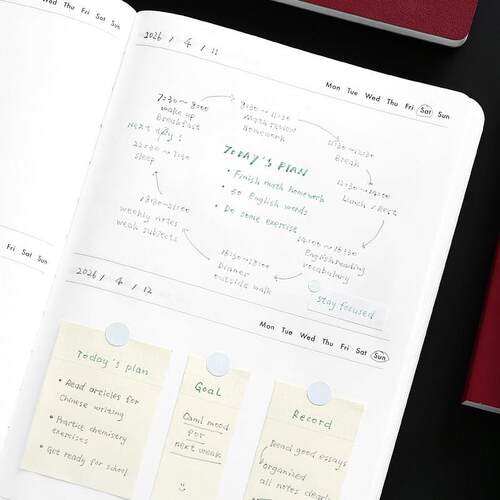 2026 / 4 / 11
Mon Tue Wed Thu Fri Sat Sun
7:30~8:00
wake up
Breakfast
8:30~11:30
Math review
homework
Break
12:30~14:00
Lunch / Rest
Next day:
22:30~7:30
sleep
TODAY'S PLAN
• Finish math homework
• 30 English words
• Do some exercise
weekly notes
weak subjects
English reading
vocabulary
Dinner
outside walk
stay focused
2026 / 4 / 12
Mon Tue Wed Thu Fri Sat Sun
Today's plan
• Read articles for
Chinese writing
• Practice chemistry
exercises
• Get ready for school
Goal
Calm mood
for
next week
Record
Read good essays
organized
all notes clearly
Fri Sat Sun
Fri Sat Sun